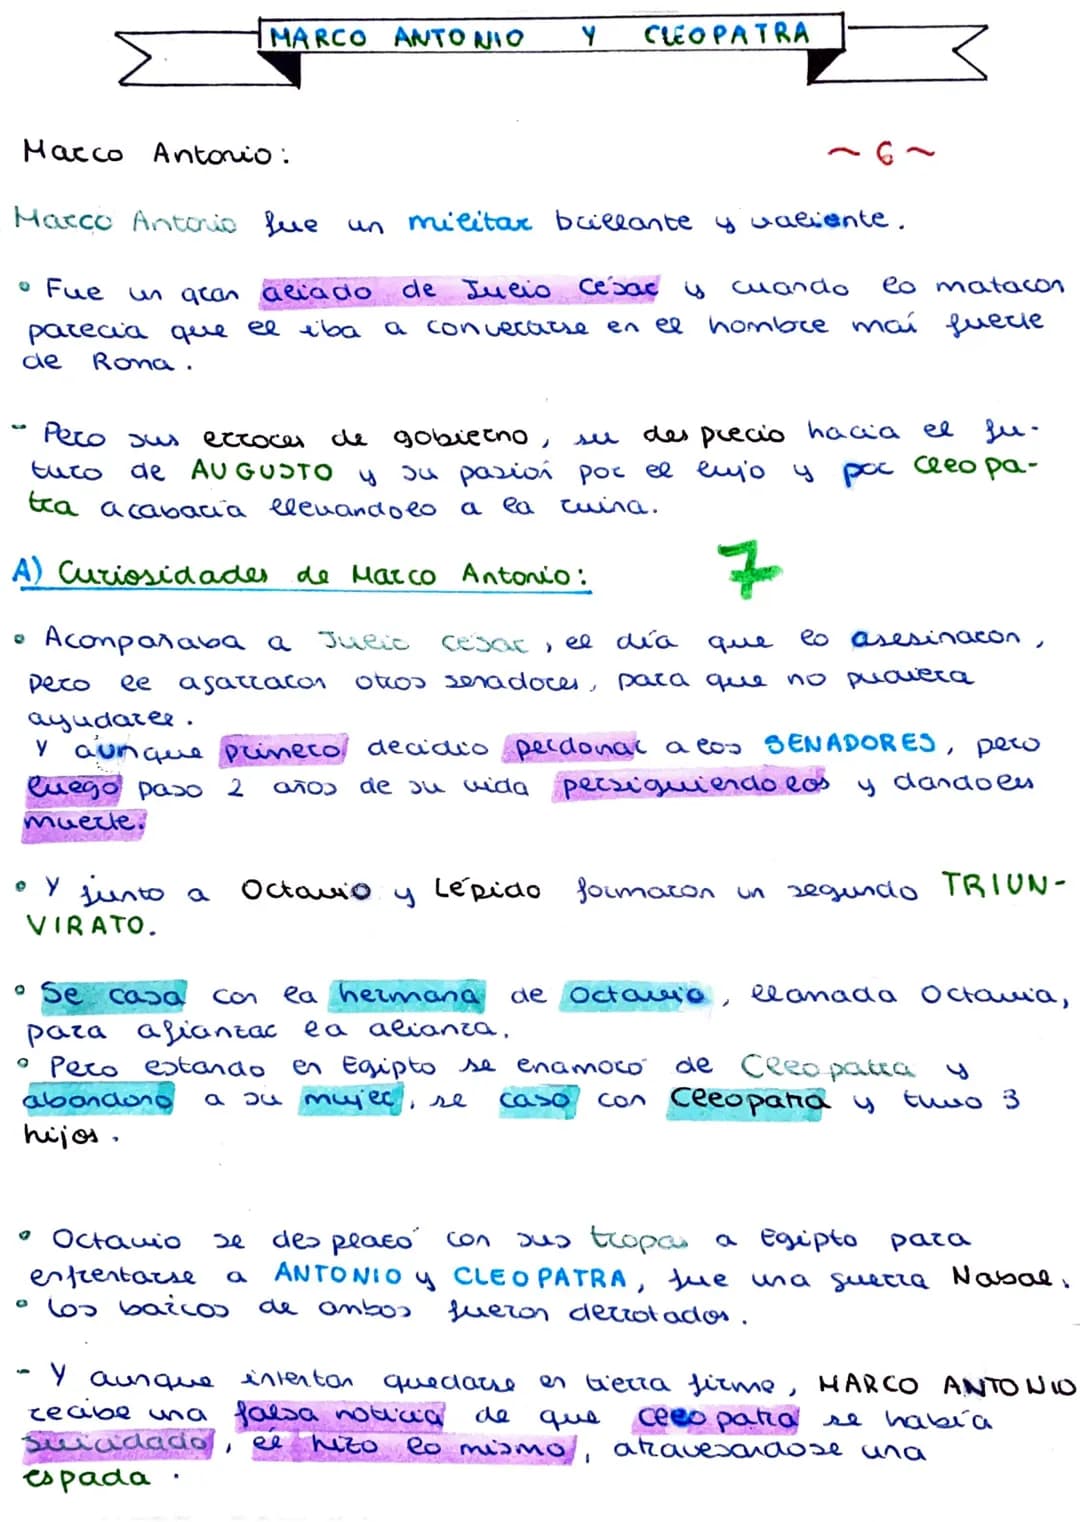 MARCO ANTONIO Y CLEOPATRA
Marco Antonio:
~ 6 ~
Marco Antonio fue un militar brillante y valiente.
• Fue un gran aliado de Julio César y cuando lo mataron
parecia que el iba a convertirse en el hombre maí fuerte
de Roma.
- Pero sus errores de gobierno, su desprecio hacia el fu-
turo de AUGUSTO y su pasioń por el lujo y por Cleopa-
tra acabaría llevandolo a la ruina.
A) Curiosidades de Marco Antonio:
7
• Acompañaba a Julio cesar, el día que lo asesinaron,
pero le agarraron otros senadores, para que no pudiera
ayudarle.
Y aunque primero decidio perdonar a los SENADORES, pero
luego paso 2 años de su vida persiguiendolos y dandoles
muerte.
• Y junto a Octavio y Lépido formaron un segundo TRIUN-
VIRATO.
• Se casa con la hermana de Octavio, llamada Octavia,
para afianzar la alianza.
• Pero estando en Egipto se enamoró de Cleopatra y
abandono a su mujer, se caso con Cleopatra y tuvo 3
hijos.
• Octavio se desplazó con sus tropas a Egipto para
enfrentarse a ANTONIO y CLEOPATRA, fue una guerra Nabal.
• Los barcos de ambos fueron derrotados.
- Y aunque intentan quedarse en tierra firme, MARCO ANTONIO
recibe una falsa noticia de que Cleopatra se había
suicidado, el hizo lo mismo, atravesandose una
espada.